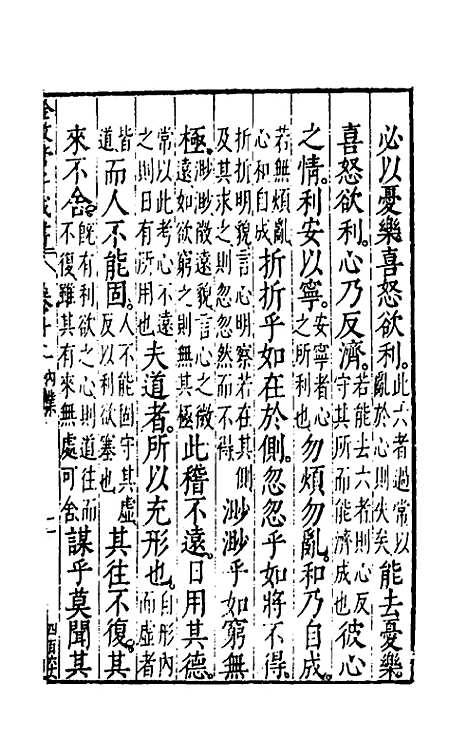 必以憂樂喜怒欲利此六者過常以亂於心則失矣能去憂樂
喜怒欲利心乃反濟若能去六者則心反守其所而能濟成也彼心
之情利安以寧安寧者心之所利也勿煩勿亂和乃自成
若無煩亂心和自成折折乎如在於側忽忽乎如將不得
折折明貌言心明察若在其側及其求之則忽忽然而不得渺渺乎如窮無
極渺渺微遠貌言心之微遠如欲窮之則無其極此稽不遠日用其德
常以此考心不遠之則日有所用也夫道者所以充形也自形內而虛者
皆道而人不能固人不能固守其虛反以利欲塞也其往不復其
來不舍旣有利欲之心則道往而不復雖其有來無處可舍謀乎莫聞其
卷十二 內業